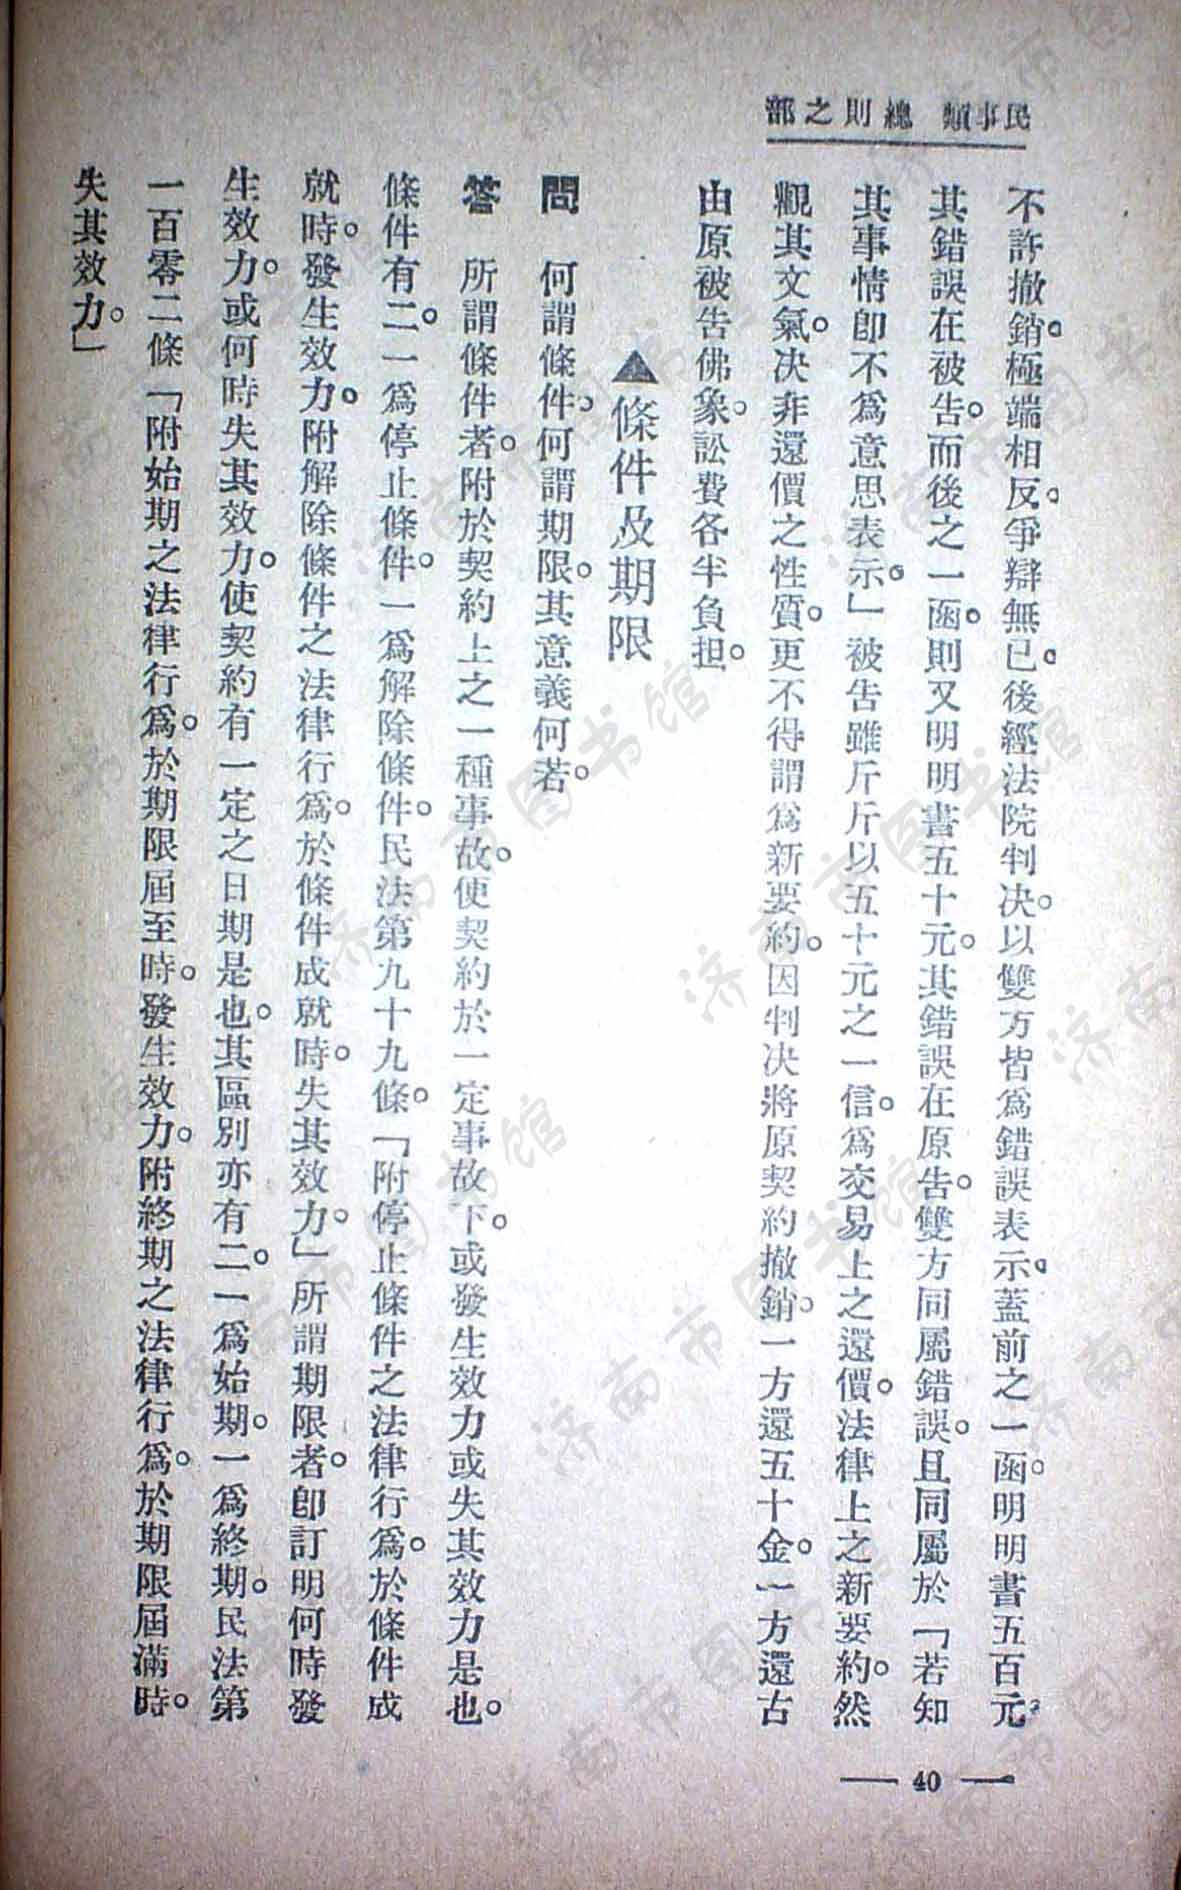 民事類 總則之部
不許撤銷。極端相反。爭辯無已。後經法院判决。以雙方皆爲錯誤表示。蓋前之一函。明明書五百元。
其錯誤在被告。而後之一函。則又明明書五十元。其錯誤在原告。雙方同屬錯誤。且同屬於「若知
其事情卽不爲意思表示。」被告雖斤斤以五十元之一信。爲交易上之還價。法律上之新要約。然
觀其文氣。决非還價之性質。更不得謂爲新要約。因判决將原契約撤銷。一方還五十金。一方還古
由原被告佛象。訟費各半負担。
▲條件及期限
問 何謂條件。何謂期限。其意義何若。
答 所謂條件者。附於契約上之一種事故。使契約於一定事故下。或發生效力或失其效力是也。
條件有二。一爲停止條件。一爲解除條件。民法第九十九條。「附停止條件之法律行爲。於條件成
就時。發生效力。附解除條件之法律行爲。於條件成就時。失其效力。」所謂期限者。卽訂明何時發
生效力。或何時失其效力。使契約有一定之日期是也。其區別亦有二。一爲始期。一爲終期。民法第
一百零二條「附始期之法律行爲。於期限屆至時。發生效力。附終期之法律行爲。於期限屆滿時。
失其效力。」
— 40 —
济南市图书馆